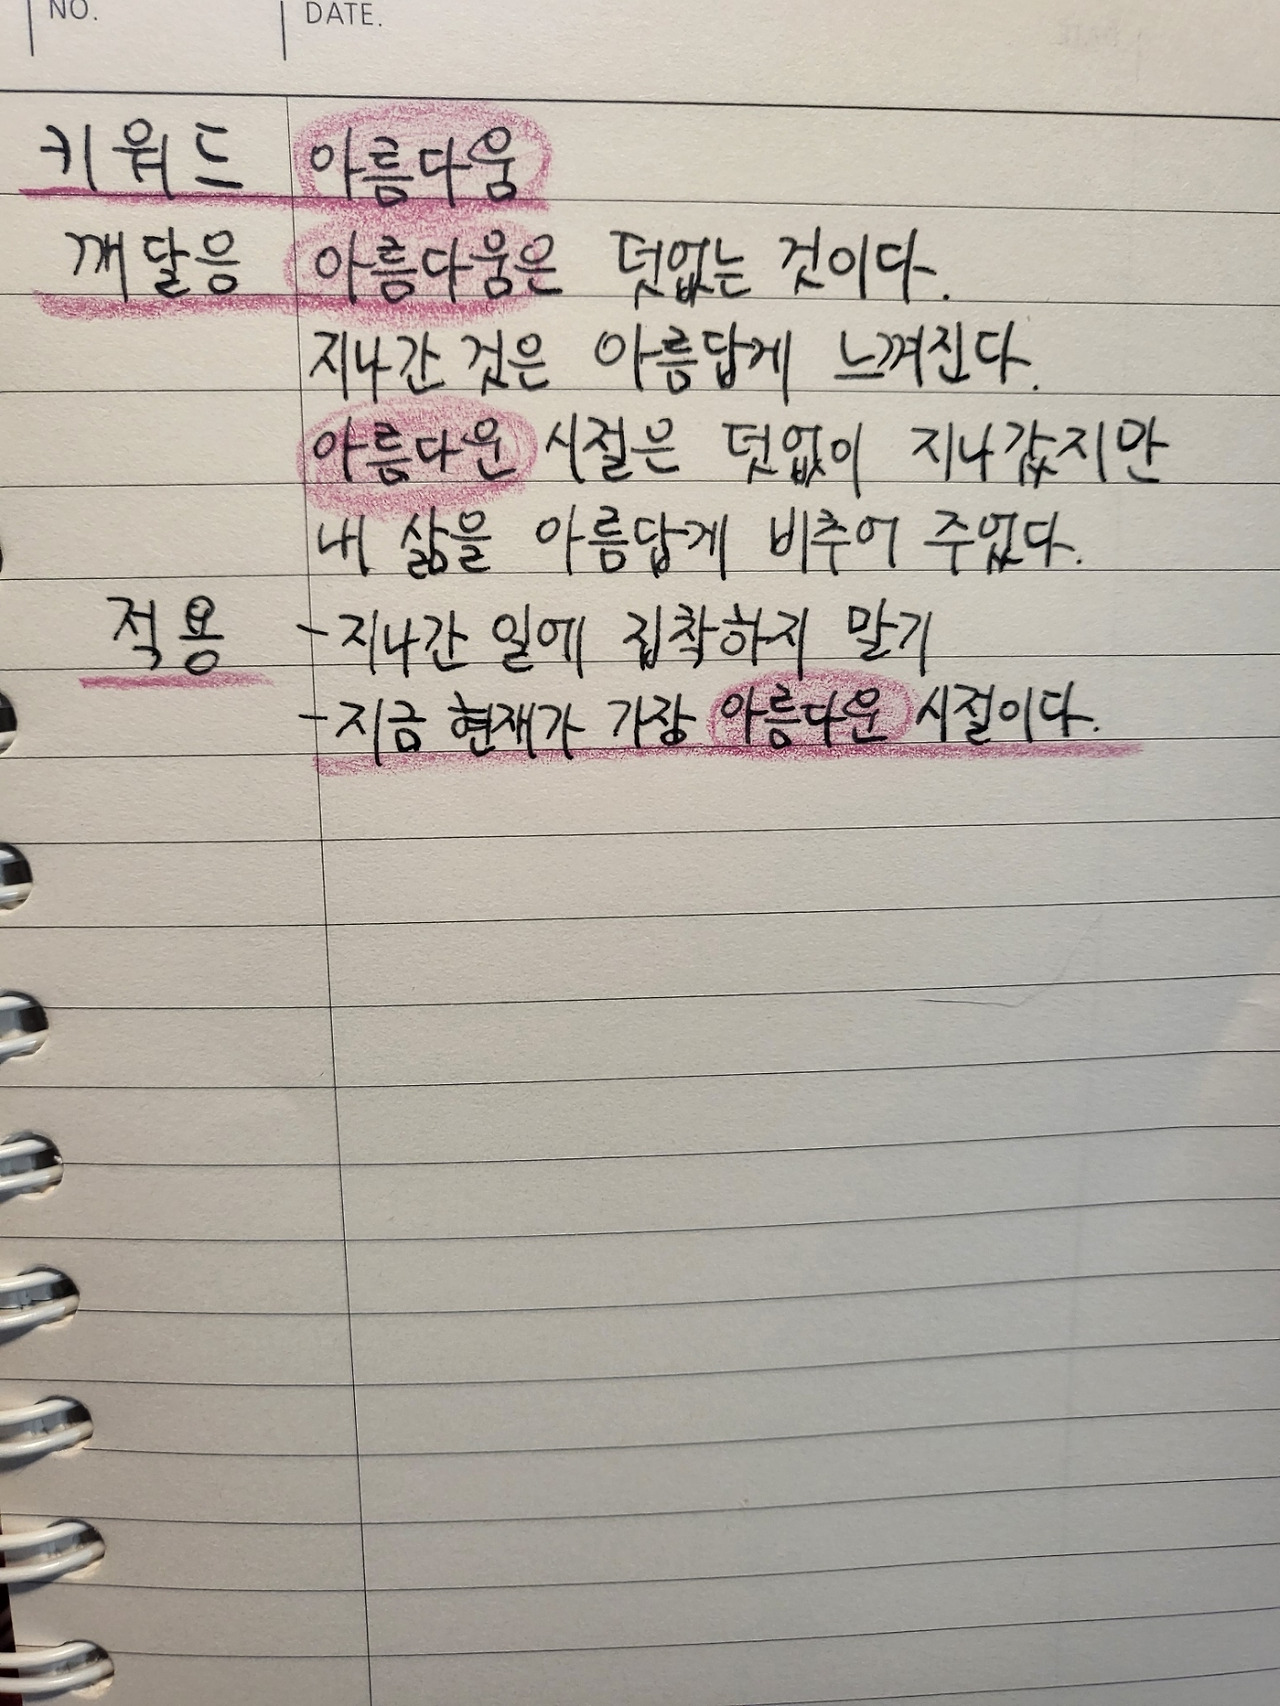 NO. DATE.
키워드 아름다움
깨달음 아름다움은 덧없는 것이다.
지나간 것은 아름답게 느껴진다.
아름다운 시절은 덧없이 지나갔지만
내 삶을 아름답게 비추어 주었다.
적용 -지나간 일에 집착하지 말기
-지금 현재가 가장 아름다운 시절이다.